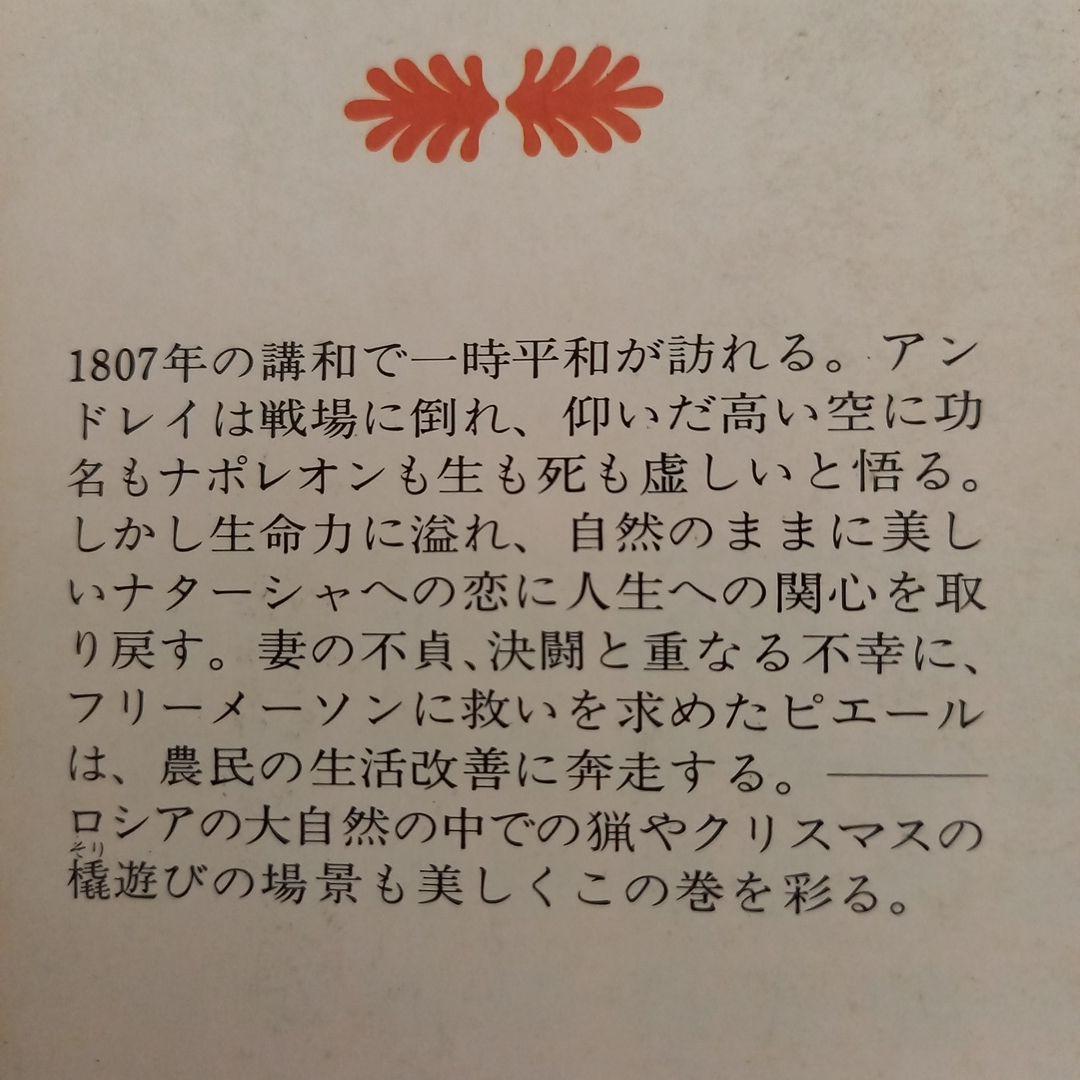 1807年の講和で一時平和が訪れる。アン
ドレイは戦場に倒れ、仰いだ高い空に功
名もナポレオンも生も死も虚しいと悟る。
しかし生命力に溢れ、自然のままに美し
いナターシャへの恋に人生への関心を取
り戻す。妻の不貞、決闘と重なる不幸に、
フリーメーソンに救いを求めたピエール
は、農民の生活改善に奔走する。――
ロシアの大自然の中での猟やクリスマスの
そり
橇遊びの場景も美しくこの巻を彩る。